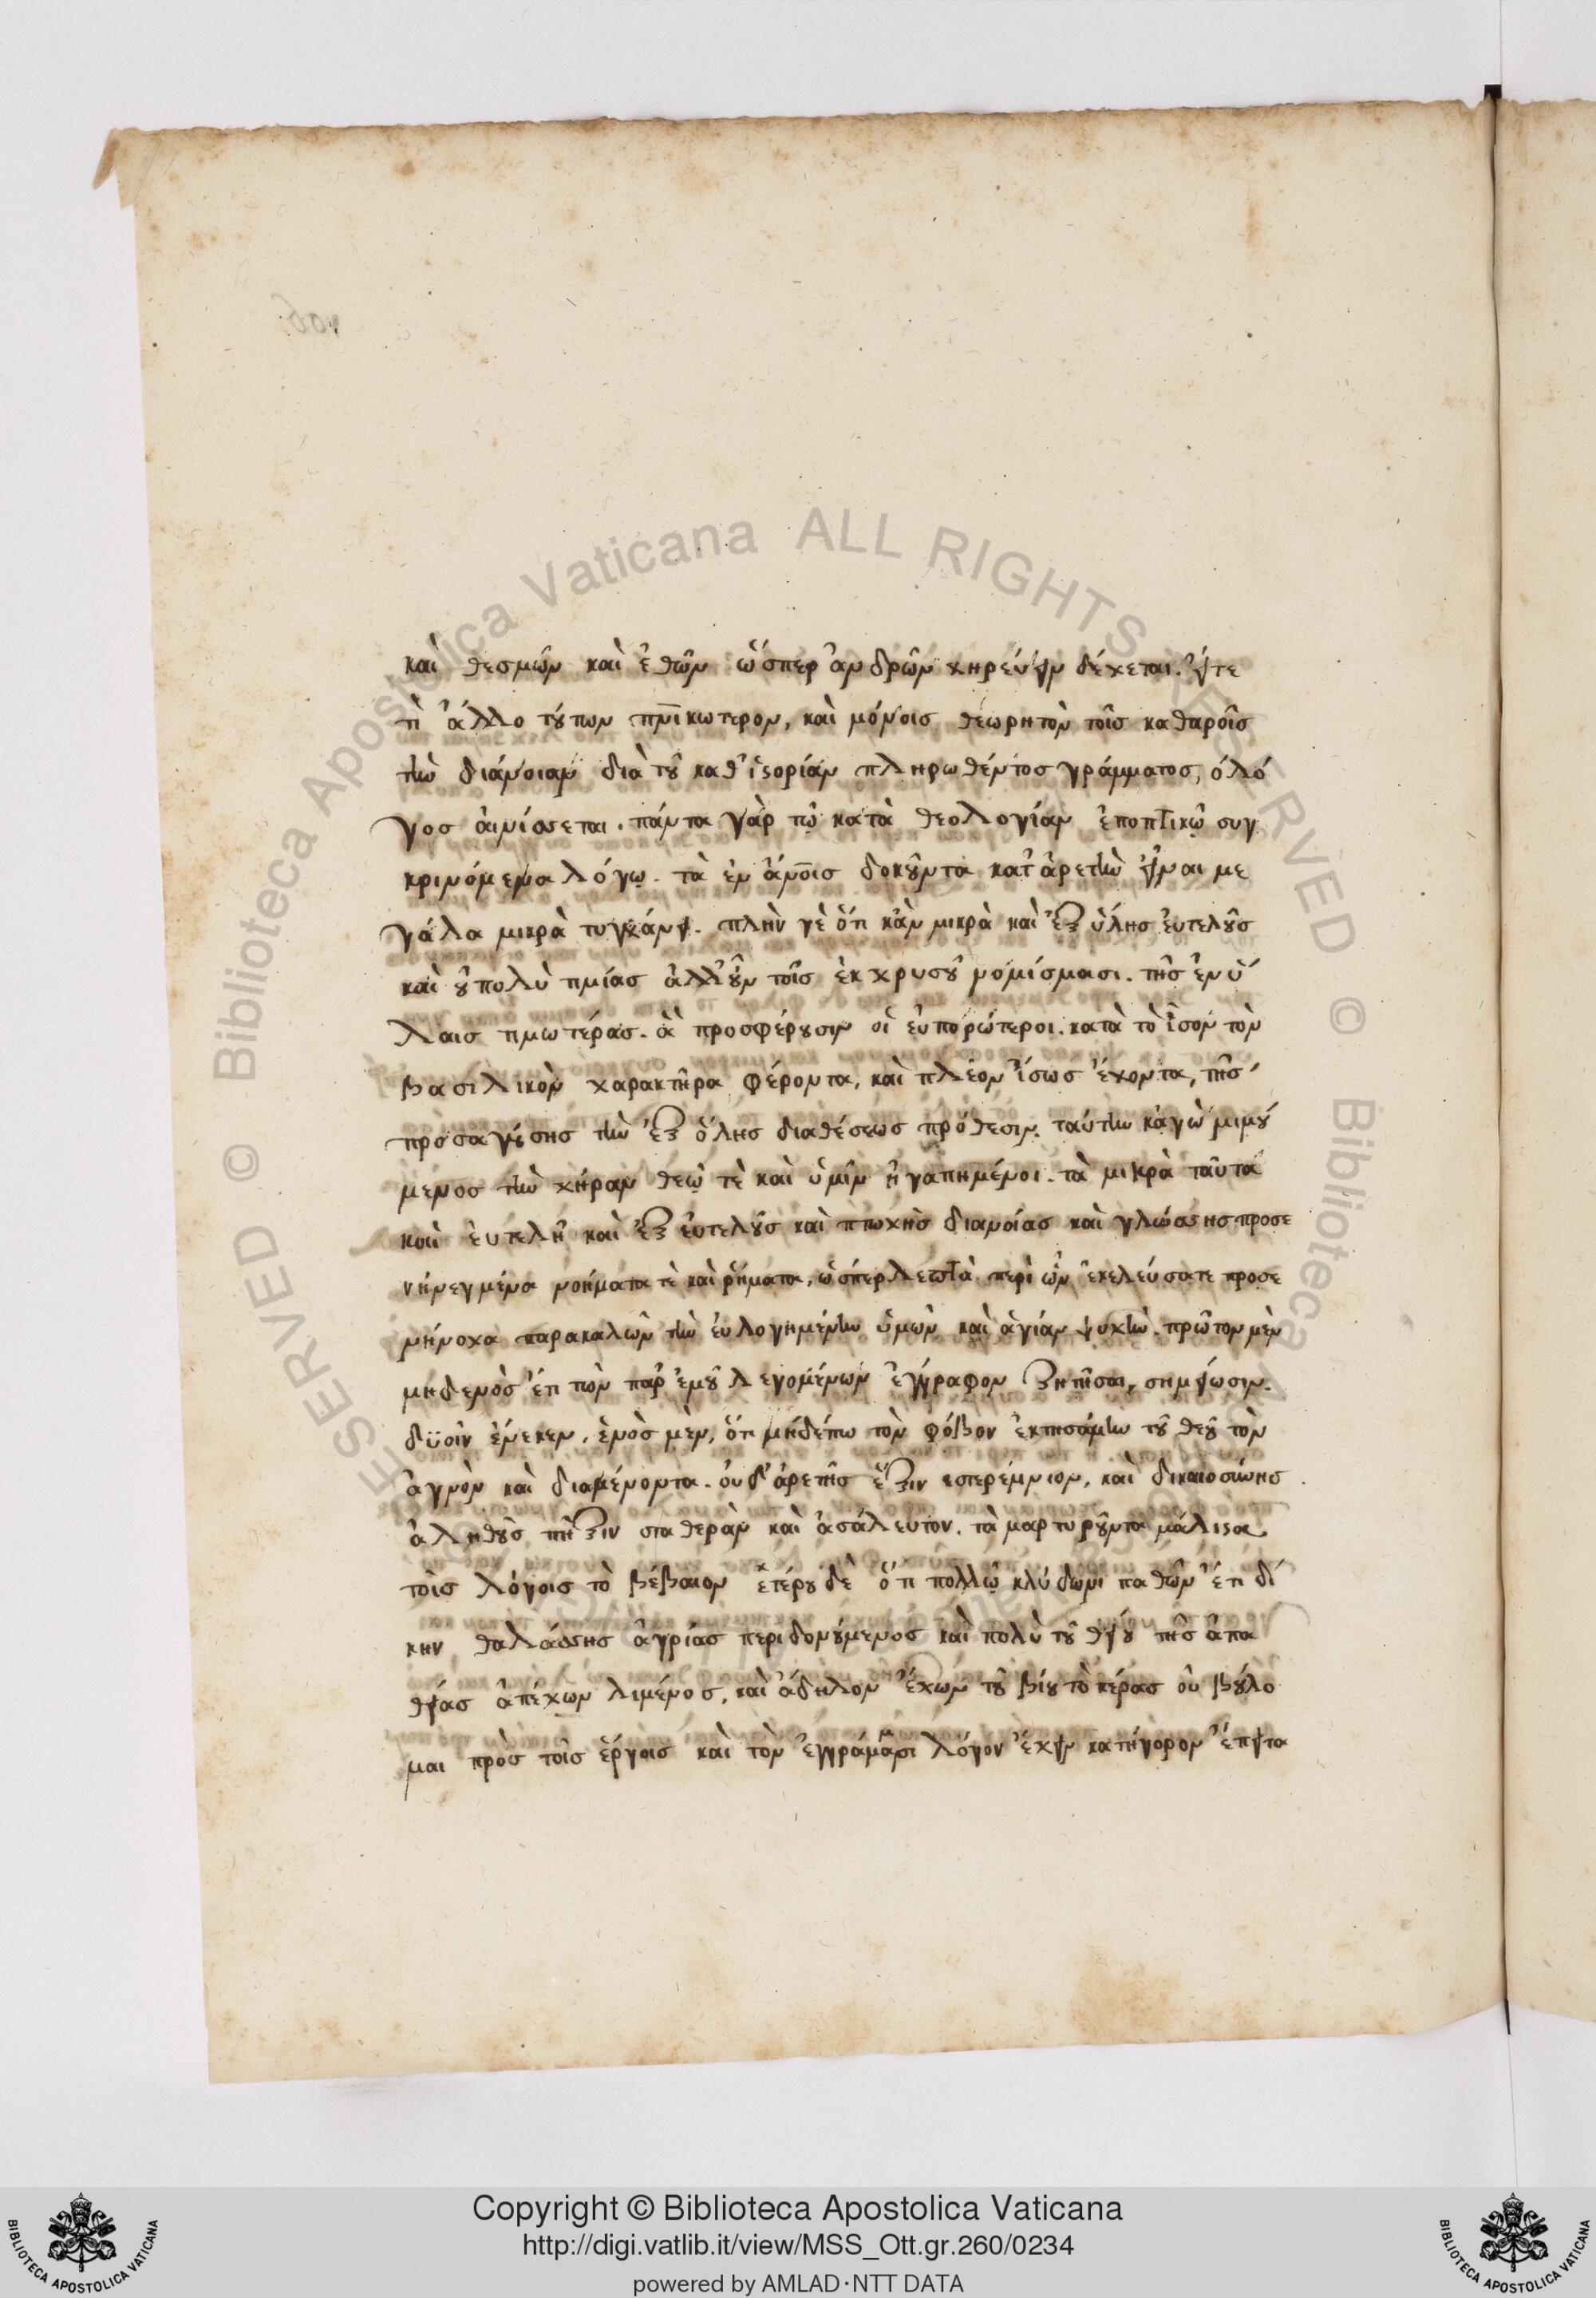 καὶ θεσμῶν καὶ ἐθῶν ὥσπερ ἀνδρῶν χηρεύειν δέχεται. εἴτε
τὶ ἄλλο τούτων πνικωτερον, καὶ μόνοις θεωρητὸν τοῖς καθαροῖς
τὴν διάνοιαν διὰ τοῦ καθ' ἱστορίαν πληρωθέντος γράμματος, ὁ λό
γος αἰνίσσεται. πάντα γὰρ τῷ κατὰ θεολογίαν ἐποπτικῷ συγ
κρινόμενα λόγῳ. τὰ ἐν ἀνοις δοκοῦντα κατ' ἀρετὴν εἶναι με
γάλα μικρὰ τυγχάνει. πλὴν γὲ ὅτι κἂν μικρὰ καὶ ἐξ ὕλης εὐτελοῦς
καὶ οὐ πολὺ τιμίας ἀλλ' οὖν τοῖς ἐκ χρυσοῦ νομίσμασι. τῆς ἐν ὕ
λαις τιμιωτέρας. ἃ προσφέρουσιν οἱ εὐπορώτεροι. κατὰ τὸ ἶσον τὸν
βασιλικὸν χαρακτῆρα φέροντα, καὶ πλέον ἴσως ἔχοντα, τῆς
προσαγούσης τὴν ἐξ ὅλης διαθέσεως πρόθεσιν. ταύτην κἀγὼ μιμού
μενος τὴν χήραν θεῷ τὲ καὶ ὑμῖν ἠγαπημένοι. τὰ μικρὰ ταῦτα
καὶ εὐτελῆ καὶ ἐξ εὐτελοῦς καὶ πτωχῆς διανοίας καὶ γλώσσης προσε
νήνεγμένα νοήματα τὲ καὶ ῥήματα, ὥσπερ λεπτὰ περὶ ὧν ἐκελεύσατε προσε
νήνοχα παρακαλῶν τὴν εὐλογημένην ὑμῶν καὶ ἁγίαν ψυχήν. πρῶτον μὲν
μηδενὸς ἔτι τῶν παρ' ἐμοῦ λεγομένων ἔγγραφον ζητῆσαι, σημείωσιν.
δϋοῖν ἕνεκεν. ἑνὸς μὲν, ὅτι μηδέπω τὸν φόβον ἐκτησάμην τοῦ θεοῦ τὸν
ἁγνὸν καὶ διαμένοντα. οὐδ' ἀρετῆς ἕξιν εστερέμνιον, καὶ δικαιοσύνης
ἀληθοῦς πῆξιν σταθερὰν καὶ ἀσάλευτον. τὰ μαρτυροῦντα μάλιστα
τοῖς λόγοις τὸ βέβαιον ἑτέρου δὲ ὅτι πολλῷ κλύδωνι παθῶν ἔτι δί
κην θαλάσσης ἀγρίας περιδονούμενος καὶ πολὺ τοῦ θείου τῆς ἀπα
θείας ἀπέχων λιμένος, καὶ ἄδηλον ἔχων τοῦ βίου τὸ πέρας οὐ βούλο
μαι πρὸς τοῖς ἔργοις καὶ τὸν ἐγγράμμασι λόγον ἔχειν κατήγορον ἔπειτα
Copyright © Biblioteca Apostolica Vaticana
http://digi.vatlib.it/view/MSS_Ott.gr.260/0234
powered by AMLAD·NTT DATA